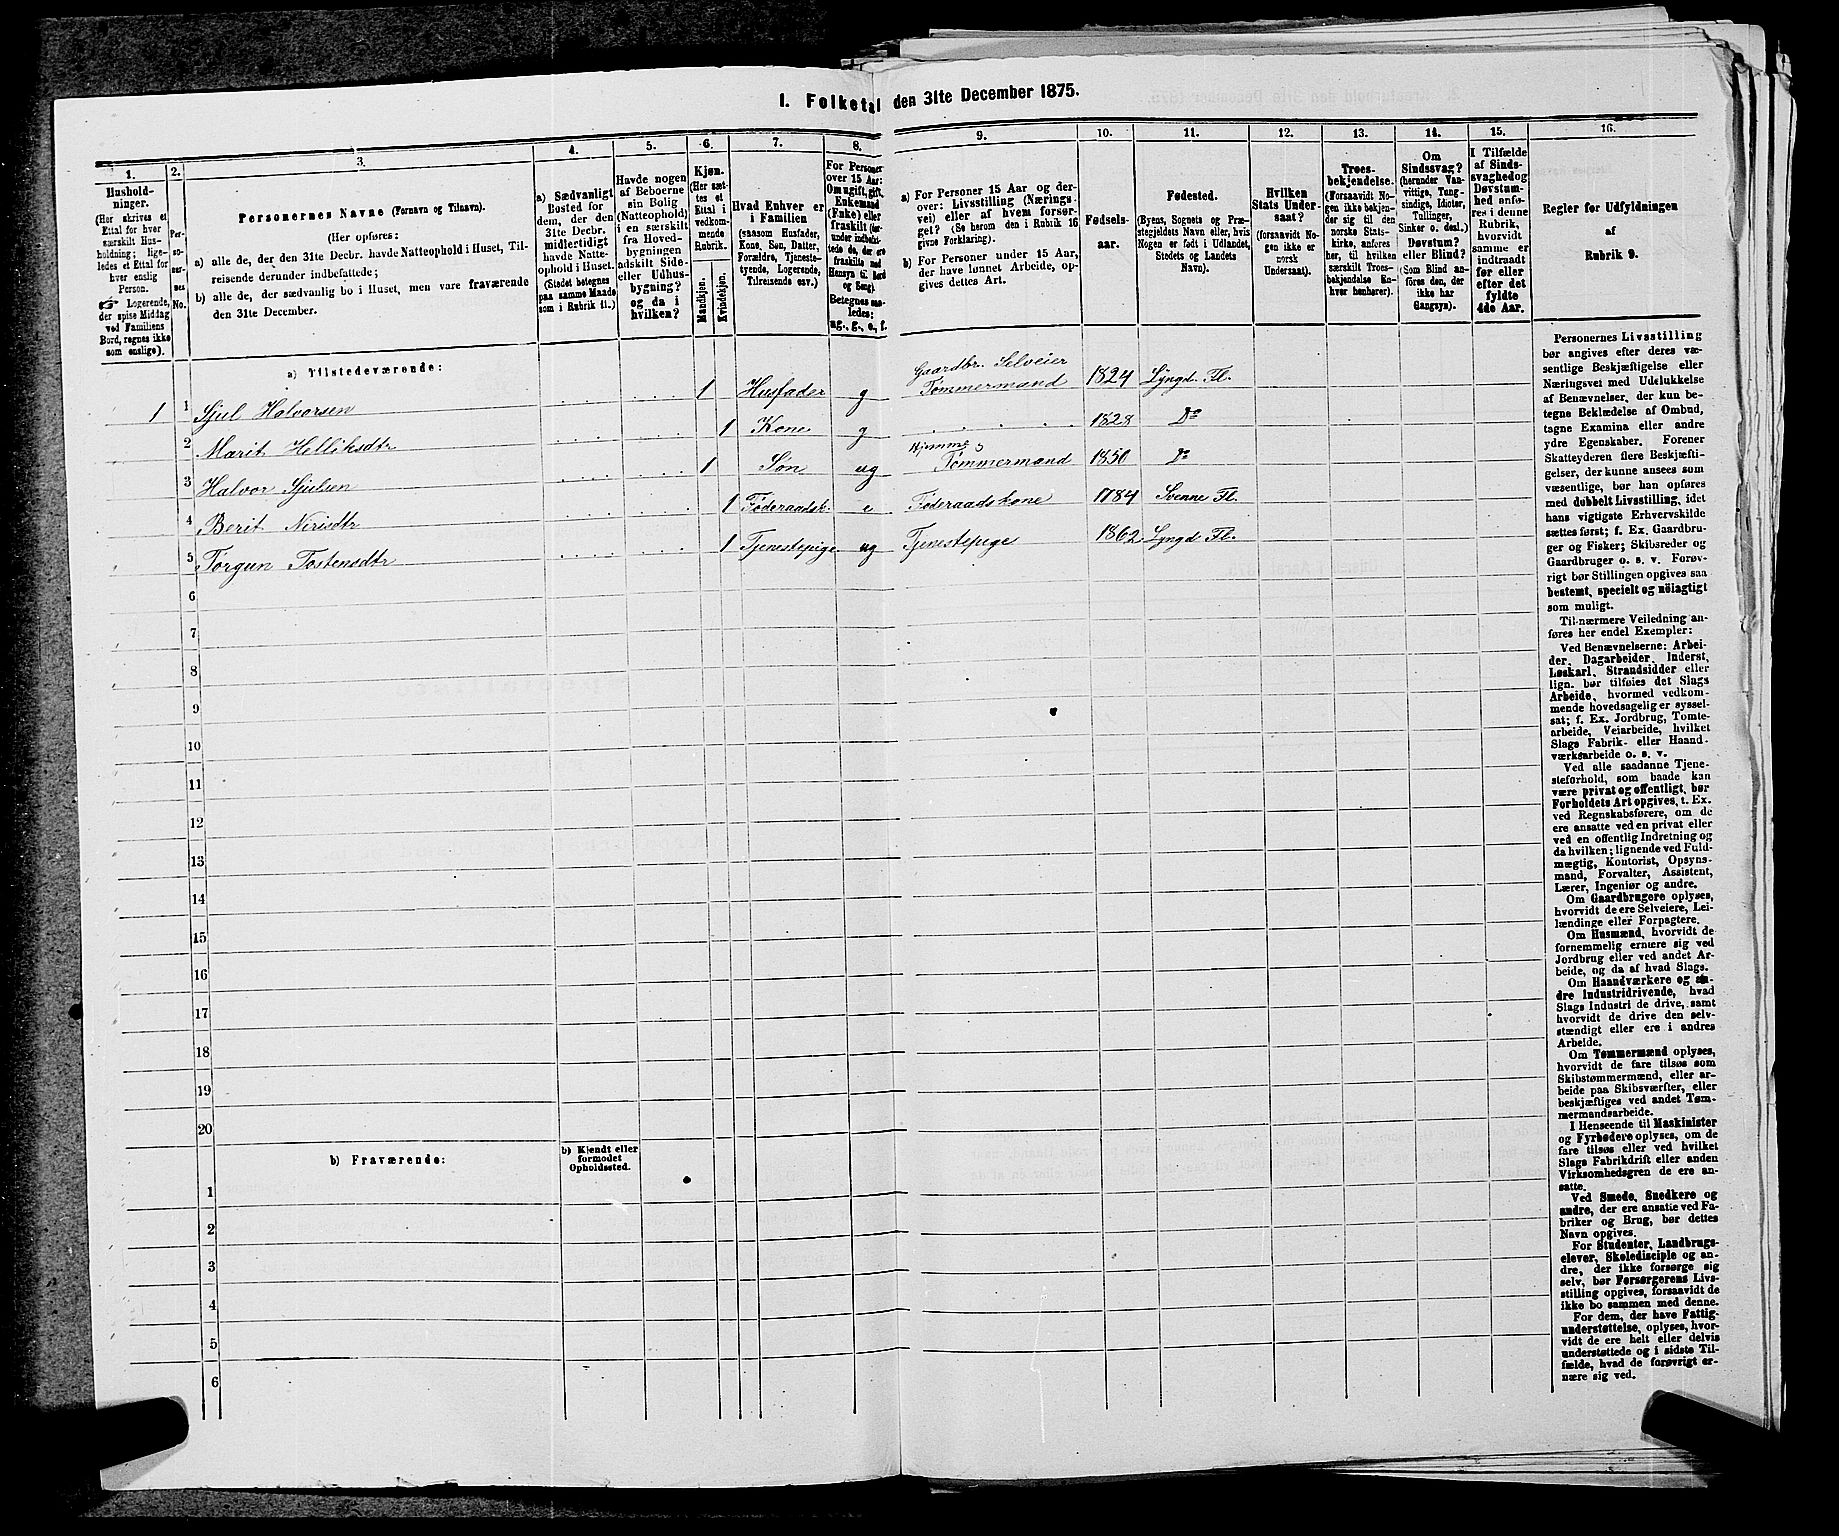 I. Folketal den 31te December 1875.
1.
Husholdninger.
(Her skrives et
Ettal for hver
særskilt Husholdning; ligeledes
et Ettal for
hver enslig
Person.
☞ Logerende,
der spise Middag
ved Familiens
Bord, regnes ikke
som enslige).
2.
Personernes
No.
3.
Personernes Navne (Fornavn og Tilnavn).
(Her opføres:
a) alle de, der den 31te Decbr. havde Natteophold i Huset, Tilreisende
derunder indbefattede;
b) alle de, der sædvanlig bo i Huset, men vare fraværende
den 31te December.
4.
a) Sædvanligt
Bosted for
dem, der den
31te Decbr.
midlertidigt
havde Natteophold
i Huset.
(Stedet betegnes
paa samme Maade
som i Rubrik 11.)
5.
Havde nogen
af Beboerne
sin Bolig
(Natteophold)
i en særskilt
fra Hovedbygningen
adskilt Side-
eller Udhusbygning?
og da i
hvilken?
6.
Kjøn.
(Her sættes
et
Ettal i
vedkommende
Rubrik.
Mandkjøn.
Kvindekjøn.
7.
Hvad Enhver er
i Familien
(saasom Husfader,
Kone, Søn, Datter,
Forældre, Tjenestetyende,
Logerende,
Tilreisende osv.)
8.
For Personer
over 15 Aar:
Om ugift, gift,
Enkemand
(Enke) eller
fraskilt
Betegnes saaledes:
ug., g., e., f.
9.
a) For Personer 15 Aar og derover:
Livsstilling (Næringsvei)
eller af hvem forsørget?
(Se herom den i Rubrik 16
givne Forklaring).
b) For Personer under 15 Aar,
der have lønnet Arbeide, opgives
dettes Art.
10.
Fødselsaar.
11.
Fødested.
(Byens, Sognets og Præstegjeldets
Navn eller, hvis
Nogen er født i Udlandet,
Stedets og Landets
Navn).
12.
Hvilken
Stats Undersaat?
(forsaavidt Nogen
ikke er
norsk
Undersaat).
13.
Troesbekjendelse.
(Forsaavidt Nogen
ikke bekjender
sig til den
norske Statskirke,
anføres
her, til hvilken
særskilt Troesbekjendelse
Enhver
henhører).
14.
Om
Sindssvag?
(herunder Vanvittige,
Tungsindige,
Idioter,
Tullinger,
Sinker o. desl.)
Døvstum?
eller Blind?
(Som Blind anføres
den, der
ikke har
Gangsyn).
15.
I Tilfælde
af Sindssvaghed
og
Døvstumhed
anføres
i denne
Rubrik,
hvorvidt
samme er
indtraadt
før eller
efter det
fyldte
4de Aar.
16.
Regler for Udfyldningen
af
Rubrik 9.
a) Tilstedeværende:
1 1 Sjul Halvorsen 1 Husfader g Gaardbr. Selveier Tømmermand 1824 Lyngd. Fl.
2 Marit Helliksdtr 1 Kone g 1828 Do
3 Halvor Sjulsen 1 Søn ug Tømmermand 1850 Do
4 Berit Nirisdtr 1 Føderaadsk. e Føderaadskone 1784 Svenne Fl.
5 Torgun Tostensdtr 1 Tjenestepige ug Tjenestepige 1862 Lyngd. Fl.
6
7
8
9
10
11
12
13
14
15
16
17
18
19
20
b) Fraværende:
b) Kjendt eller
formodet
Opholdssted.
1
2
3
4
5
6
Personernes Livsstilling
bør angives efter deres væsentlige
Beskjæftigelse eller
Næringsvei med Udelukkelse
af Benævnelser, der kun betegne
Beklædelse af Ombud,
tagne Examina eller andre
ydre Egenskaber. Forener
Skatteyderen flere Beskjæftigelser,
der kunne ansees som
væsentlige, bør han opføres
med dobbelt Livsstilling, idet
hans vigtigste Erhvervskilde
sættes først; f. Ex. Gaardbruger
og Fisker; Skibsreder og
Gaardbruger o. s. v. Forøvrigt
bør Stillingen opgives saa
bestemt, specielt og nöiagtigt
som muligt.
Til nærmere Veiledning anføres
her endel Exempler:
Ved Benævnelserne: Arbeider,
Dagarbeider, Inderst,
Løskarl, Strandsidder eller
lign. bør tilføies det Slags
Arbeide, hvormed vedkommende
hovedsagelig er sysselsat;
f. Ex. Jordbrug, Tomtearbeide,
Veiarbeide, hvilket
Slags Fabrik- eller Haandværksarbeide
o. s. v.
Ved alle saadanne Tjenesteforhold,
som baade kan
være privat og offentligt, bør
Forholdets Art opgives, t. Ex.
ved Regnskabsførere, om de
ere ansatte ved en privat eller
ved en offentlig Indretning og
da hvilken; lignende ved Fuldmægtig,
Kontorist, Opsynsmand,
Forvalter, Assistent,
Lærer, Ingeniør og andre.
Om Gaardbrugere oplyses,
hvorvidt de ere Selveiere, Leilændinge
eller Forpagtere.
Om Husmænd, hvorvidt de
fornemmelig ernære sig ved
Jordbrug eller ved andet Arbeide,
og da af hvad Slags.
Om Haandværkere og andre
Industridrivende, hvad
Slags Industri de drive, samt
hvorvidt de drive den selvstændigt
eller ere i andres
Arbeide.
Om Tømmermænd oplyses,
hvorvidt de fare tilsøs som
Skibstømmermænd, eller arbeide
paa Skibsværfter, eller
beskjæftiges ved andet Tømmermandsarbeide.
I Henseende til Maskinister
og Fyrbødere oplyses, om de
fare tilsøs eller ved hvilket
Slags Fabrikdrift eller anden
Virksomhedsgren de ere ansatte.
Ved Smede, Snedkere og
andre, der ere ansatte ved Fabriker
og Brug, bør dettes
Navn opgives.
For Studenter, Landbrugselever,
Skoledisciple og andre,
der ikke forsørge sig
selv, bør Forsørgerens Livsstilling
opgives, forsaavidt de
ikke bo sammen med denne.
For dem, der have Fattigunderstøttelse,
oplyses, hvorvidt
de ere helt eller delvis
understøttede og i sidste Tilfælde,
hvad de forøvrigt ernære
sig ved.